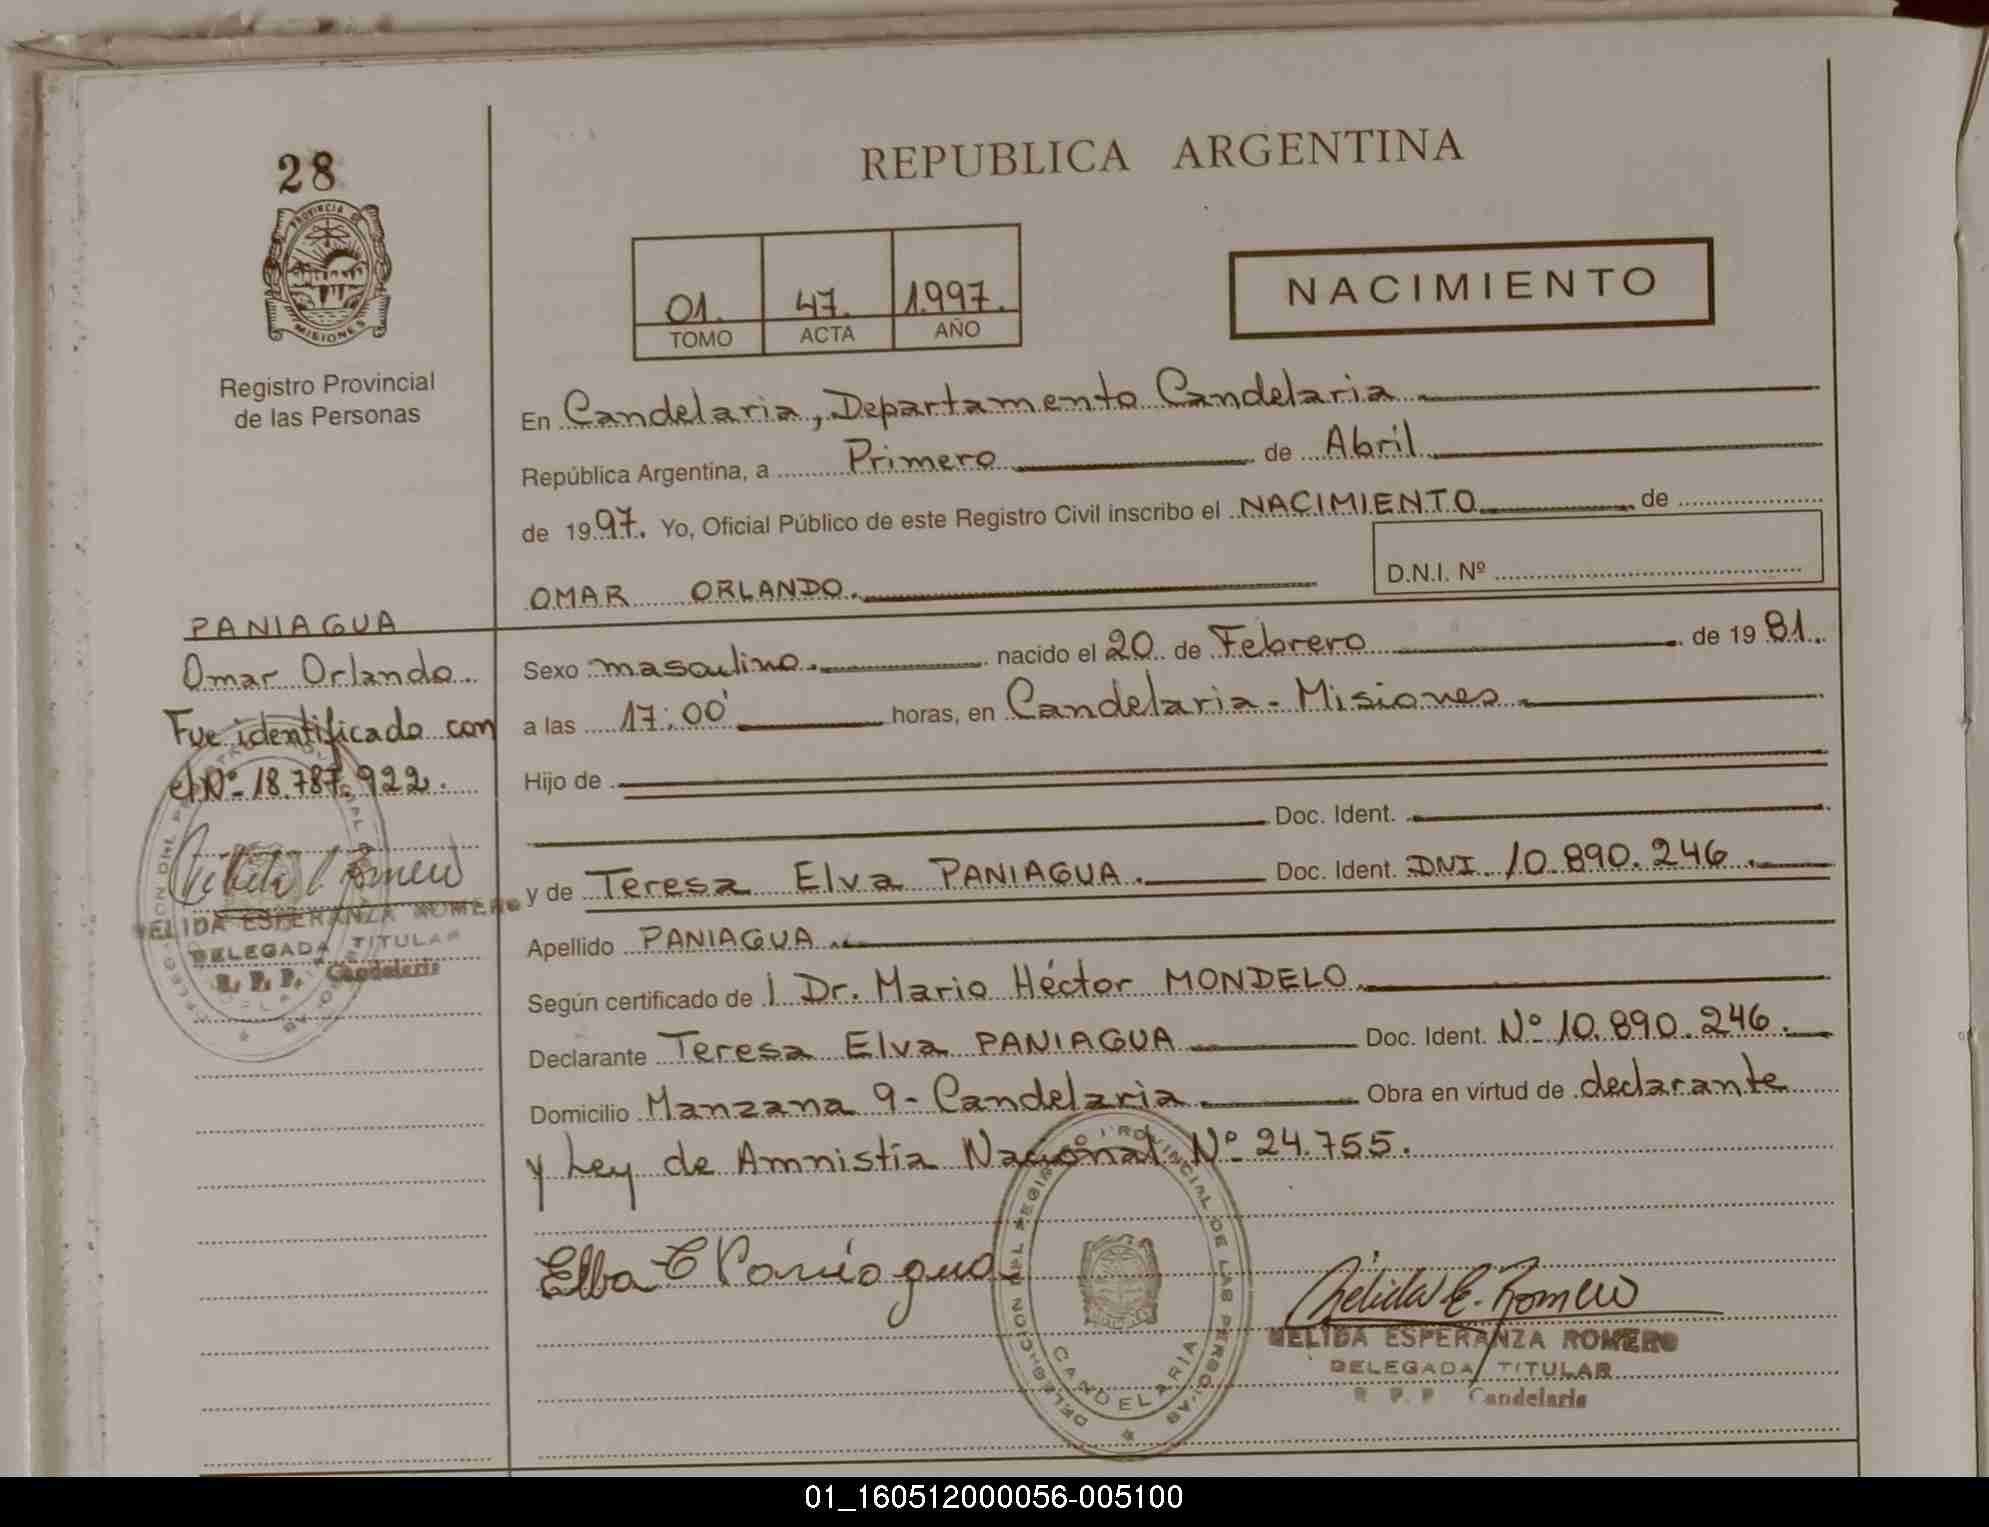 28
PROVINCIA DE
MISIONES
Registro Provincial
de las Personas
REPUBLICA ARGENTINA
01. 47. 1.997.
TOMO ACTA AÑO
NACIMIENTO
En Candelaria, Departamento Candelaria
República Argentina, a Primero de Abril
de 1997. Yo, Oficial Público de este Registro Civil inscribo el NACIMIENTO de
OMAR ORLANDO.
D.N.I. Nº
PANIAGUA
Omar Orlando.
Fue identificado con
el Nº 18.787.922.
Nélida E Romero
NELIDA ESPERANZA ROMERO
DELEGADA TITULAR
R. P. P. Candelaria
Sexo masculino. nacido el 20 de Febrero de 1981.
a las 17:00 horas, en Candelaria - Misiones
Hijo de
Doc. Ident.
y de Teresa Elva PANIAGUA. Doc. Ident. DNI 10.890.246.
Apellido PANIAGUA.
Según certificado de l Dr. Mario Héctor MONDELO
Declarante Teresa Elva PANIAGUA Doc. Ident. Nº 10.890.246.
Domicilio Manzana 9 - Candelaria Obra en virtud de declarante
y Ley de Amnistía Nacional Nº 24.755.
Elba C Paniagua
DELEGACION DEL REGISTRO PROVINCIAL DE LAS PERSONAS
CANDELARIA
Nélida E. Romero
NELIDA ESPERANZA ROMERO
DELEGADA TITULAR
R. P. P. Candelaria
01_160512000056-005100